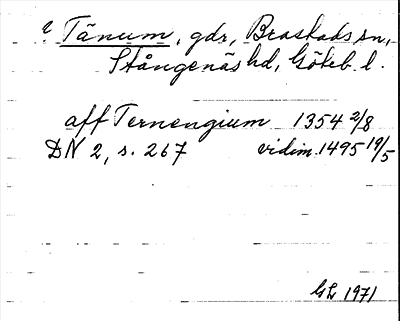 Tänum, gdr, Brastads sn,
Stångenäs hd, Göteb. l.
aff Ternengium 1354 2/8
DN 2, s. 267 vidim. 1495 19/5
GL 1971